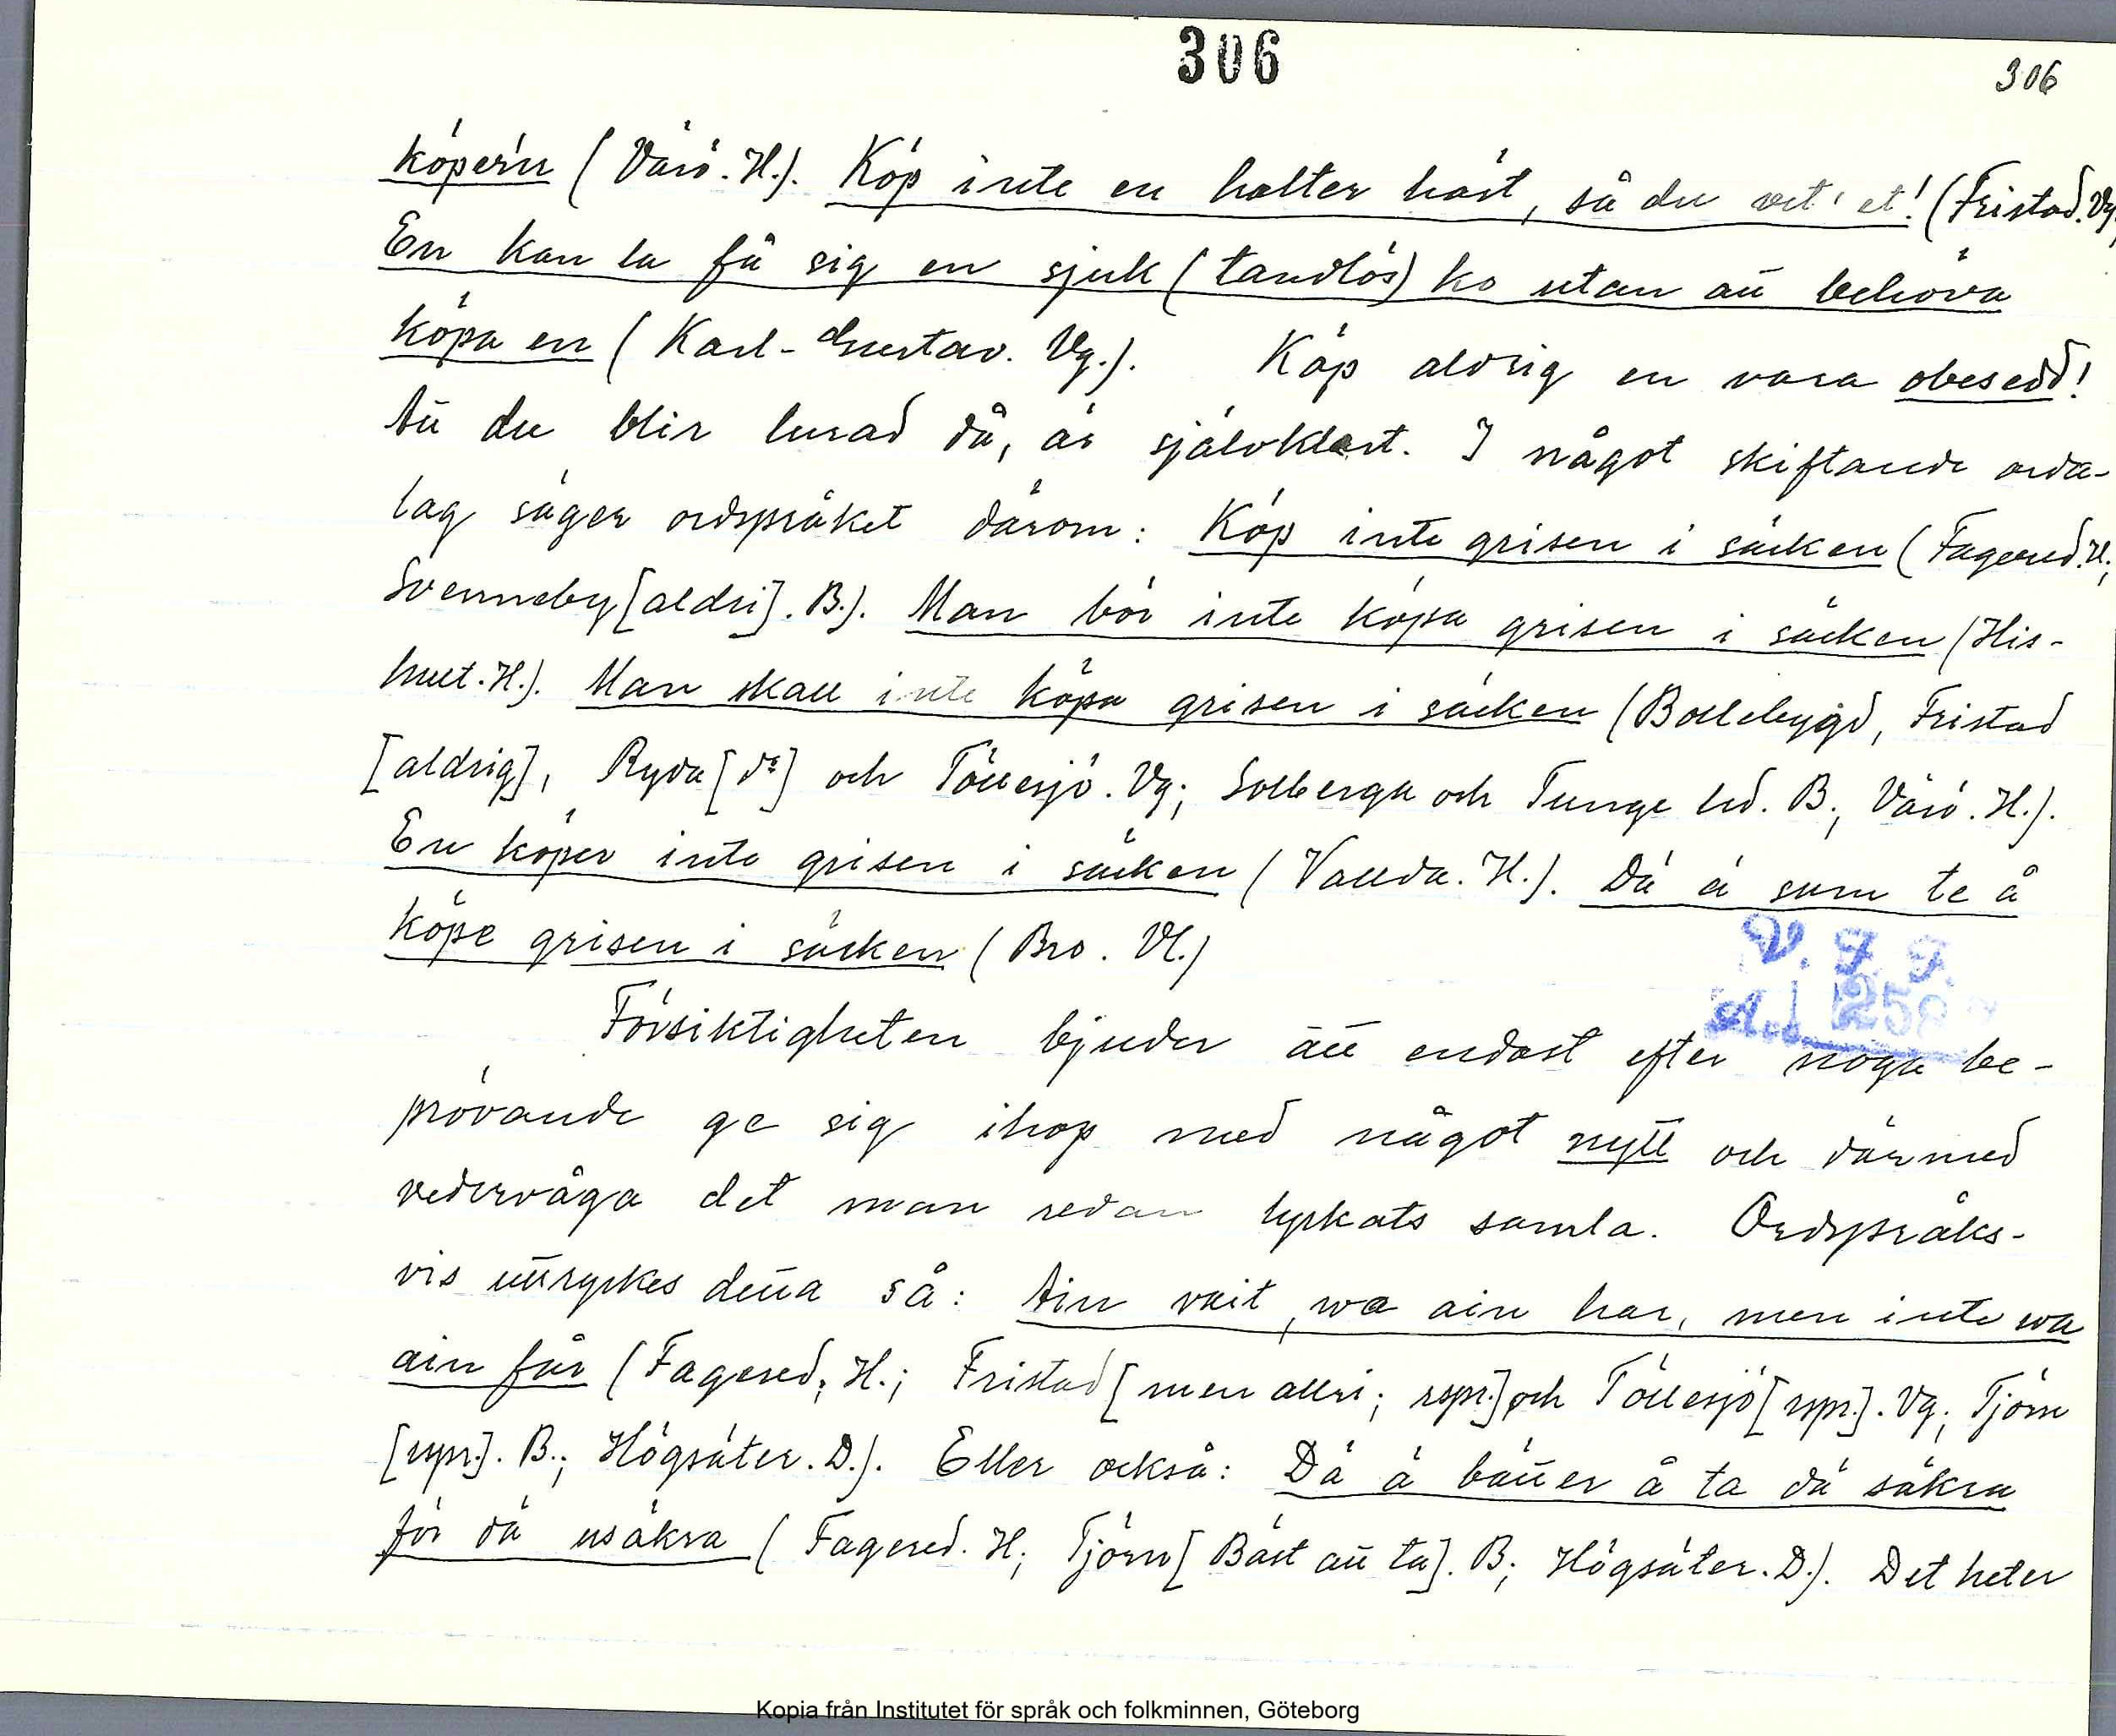 306
306
köper'n (Värö. H.). Köp inte en halter häst, så du vet'et! (Fristad. Vg.
En kan la få sig en sjuk (tandlös) ko utan att behöva
köpa en (Karl-Gustav. Vg.). Köp aldrig en vara obesedd!
Att du blir lurad då, är självklart. I något skiftande orda-
lag säger ordspråket därom: Köp inte grisen i säcken (Fagered. H.;
Svenneby [aldri]. B.). Man bör inte köpa grisen i säcken (His-
hult. H.). Man skall inte köpa grisen i säcken (Bollebygd, Fristad
[aldrig], Ryda [do] och Töllesjö. Vg; Solberga och Tunge hd. B; Värö. H.).
En köper inte grisen i säcken (Vallda. H.). Dä ä sum te å
köpe grisen i säcken (Bro. Vl.)
V. F. F.
Försiktigheten bjuder att endast efter noga be-
prövande ge sig ihop med något nytt och därmed
vedervåga det man redan lyckats samla. Ordspråks-
vis uttryckes detta så: Ain vait, wa ain har, men inte wa
ain får (Fagered. H.; Fristad [men allri; rspr.] och Töllesjö [rspr.]. Vg; Tjörn
[rspr.]. B.; Högsäter. D.). Eller också: Dä ä bätter å ta dä säkra
för dä usäkra (Fagered. H; Tjörn [Bäst att ta]. B; Högsäter. D.). Det heter
Kopia från Institutet för språk och folkminnen, Göteborg